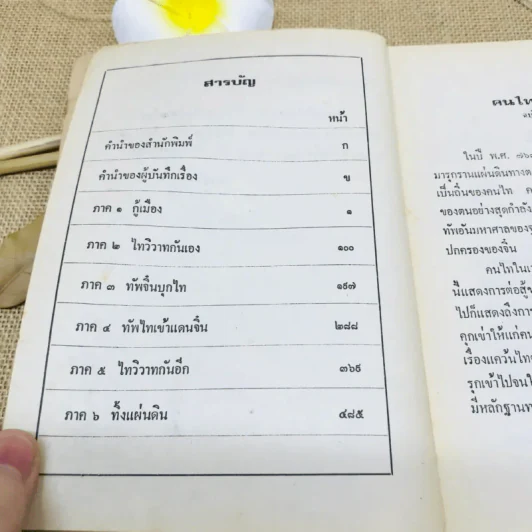 สารบัญ
หน้า
คำนำของสำนักพิมพ์ ก
คำนำของผู้บันทึกเรื่อง ข
ภาค ๑ กู้เมือง ๑
ภาค ๒ ไทวิวาทกันเอง ๑๐๐
ภาค ๓ ทัพจีนบุกไท ๑๙๗
ภาค ๔ ทัพไทเข้าแดนจีน ๒๘๘
ภาค ๕ ไทวิวาทกันอีก ๓๖๙
ภาค ๖ ทิ้งแผ่นดิน ๔๘๕
คนไท
ในปี พ.ศ. ๗๖
มารุกรานแผ่นดินทางต
เป็นถิ่นของคนไท
ของตนอย่างสุดกำลัง
ทัพอันมหาศาลของ
ปกครองของจีน
คนไทใน
นี้แสดงการต่อสู้
ไปก็แสดงถึงการ
คุกเข่าให้แก่คน
เรื่องแคว้นไท
รุกเข้าไปจน
มีหลักฐาน